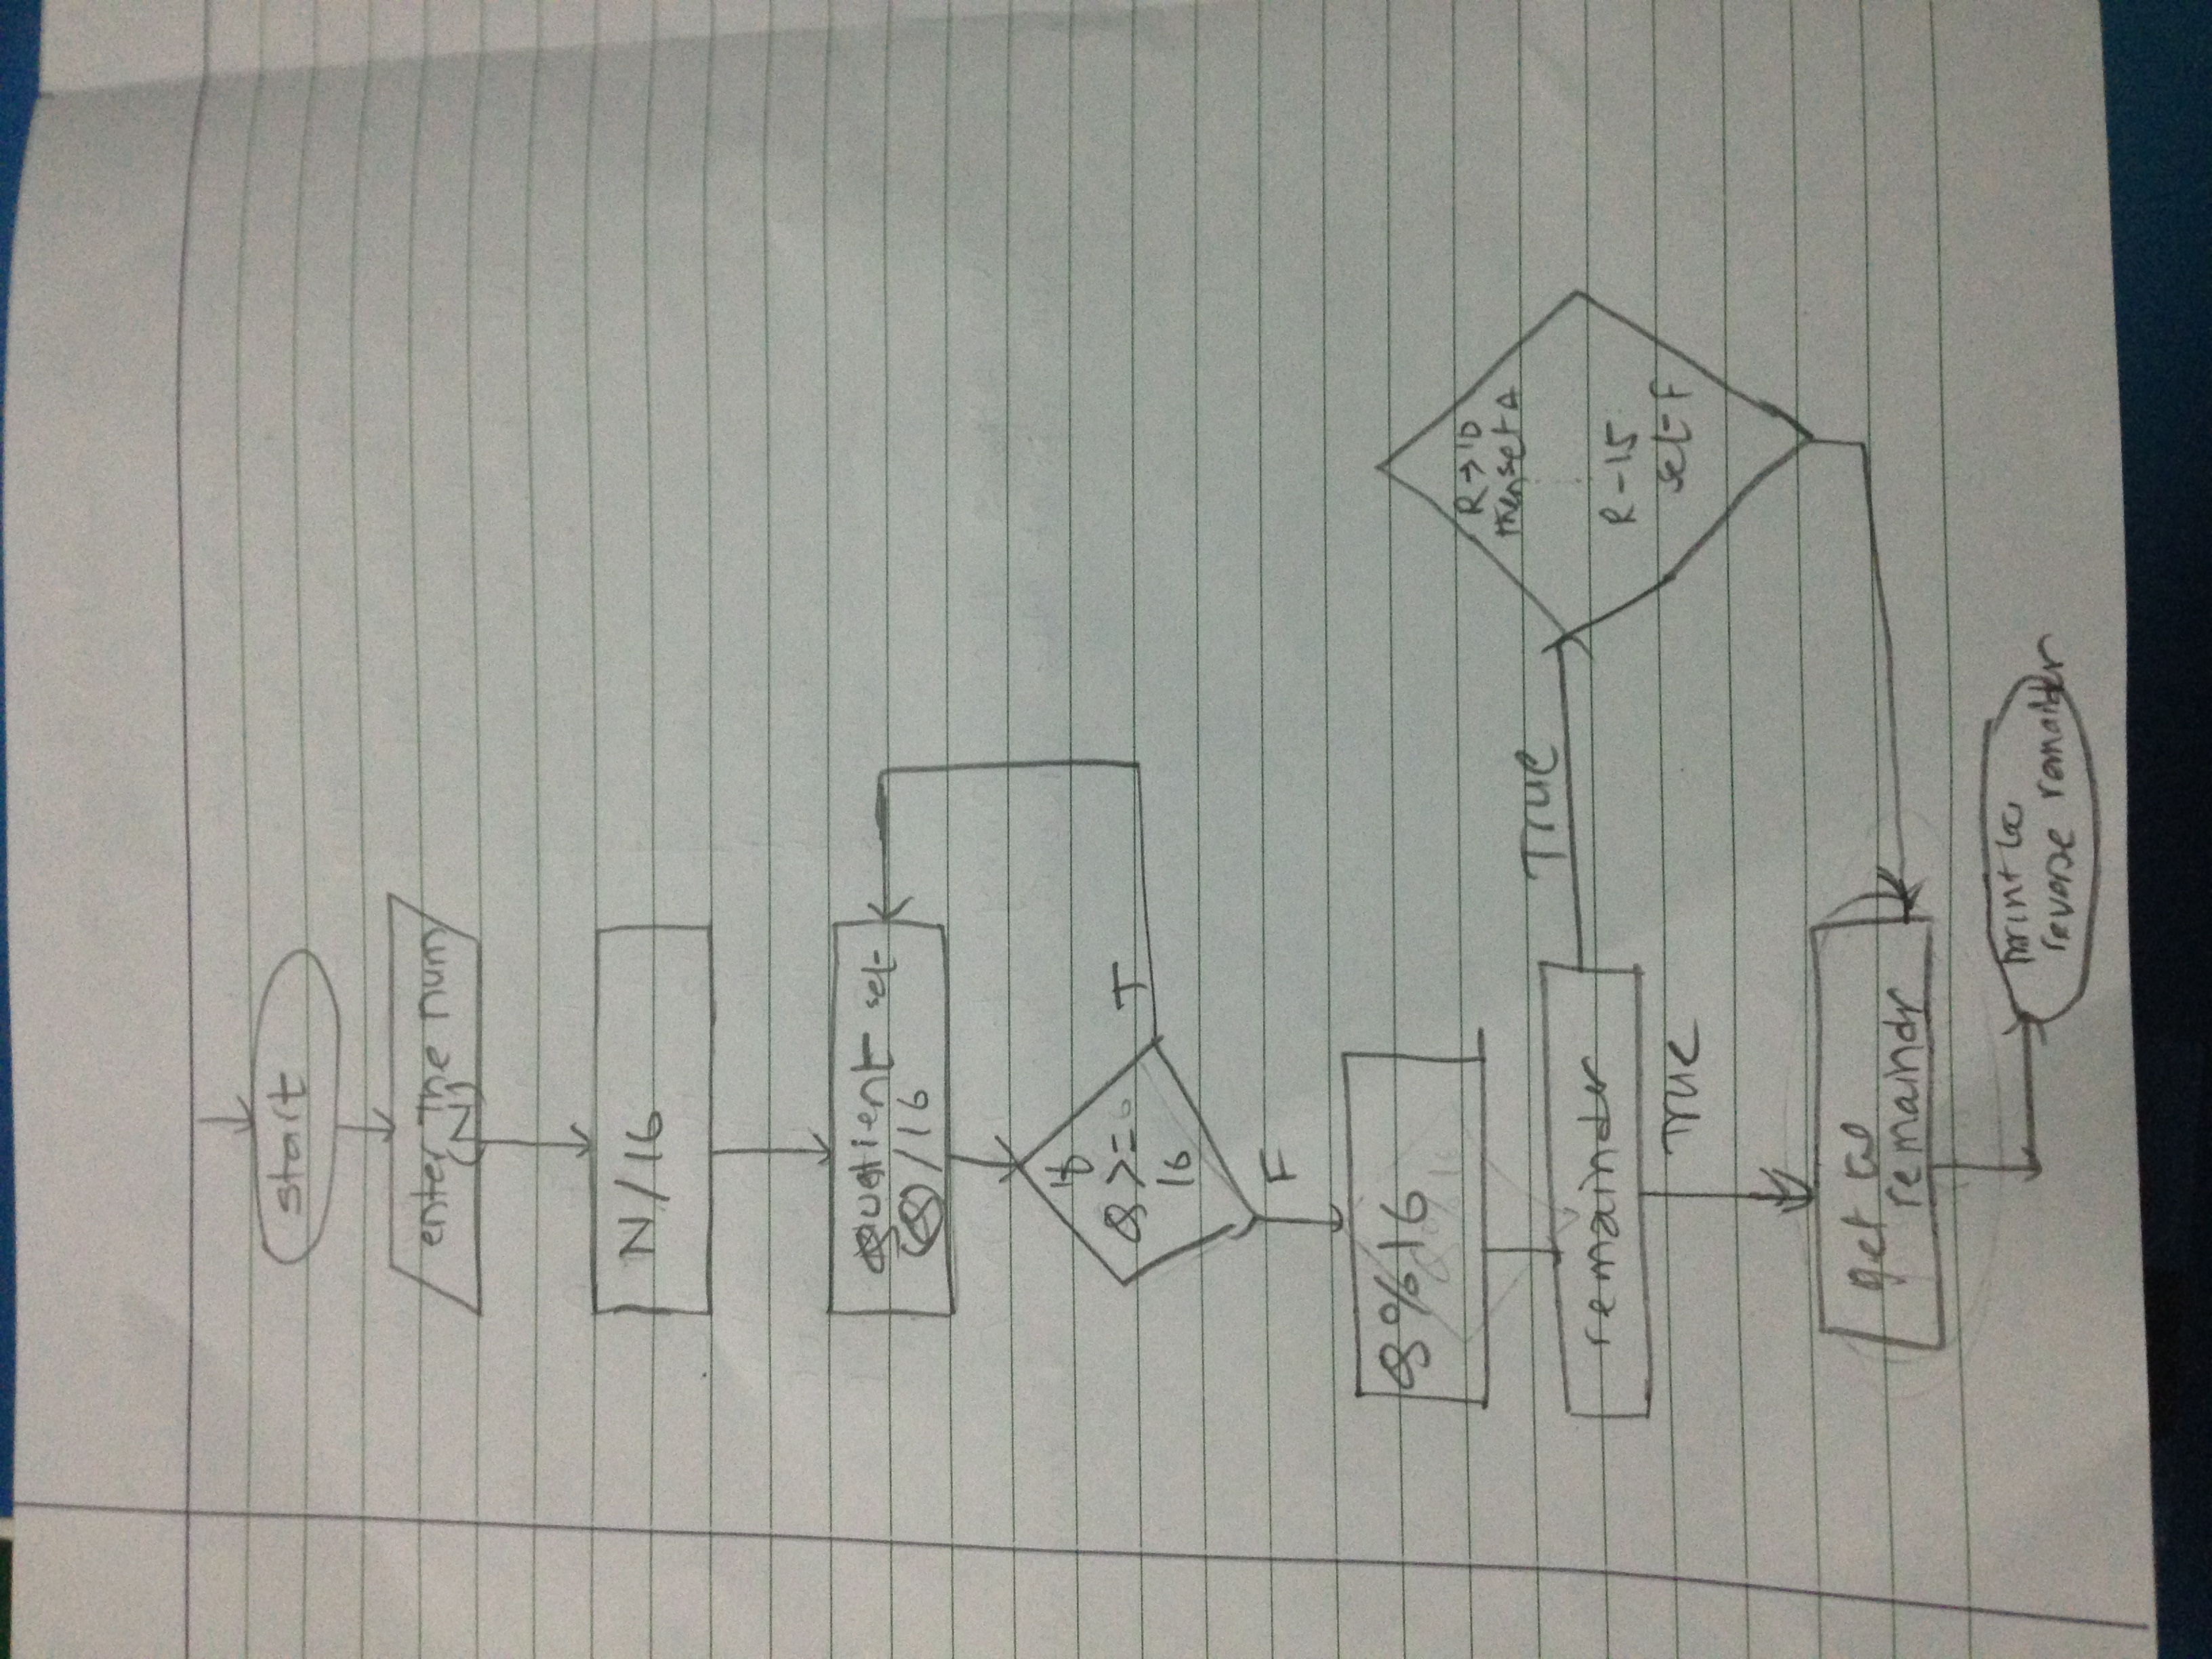 start
enter the num
(N)
N/16
Quotient set
Q/16
if
Q>=
16
T
F
Q%16
remainder
True
R→10
then set A
R-15
set F
True
get
remaindr
print
reverse remainder